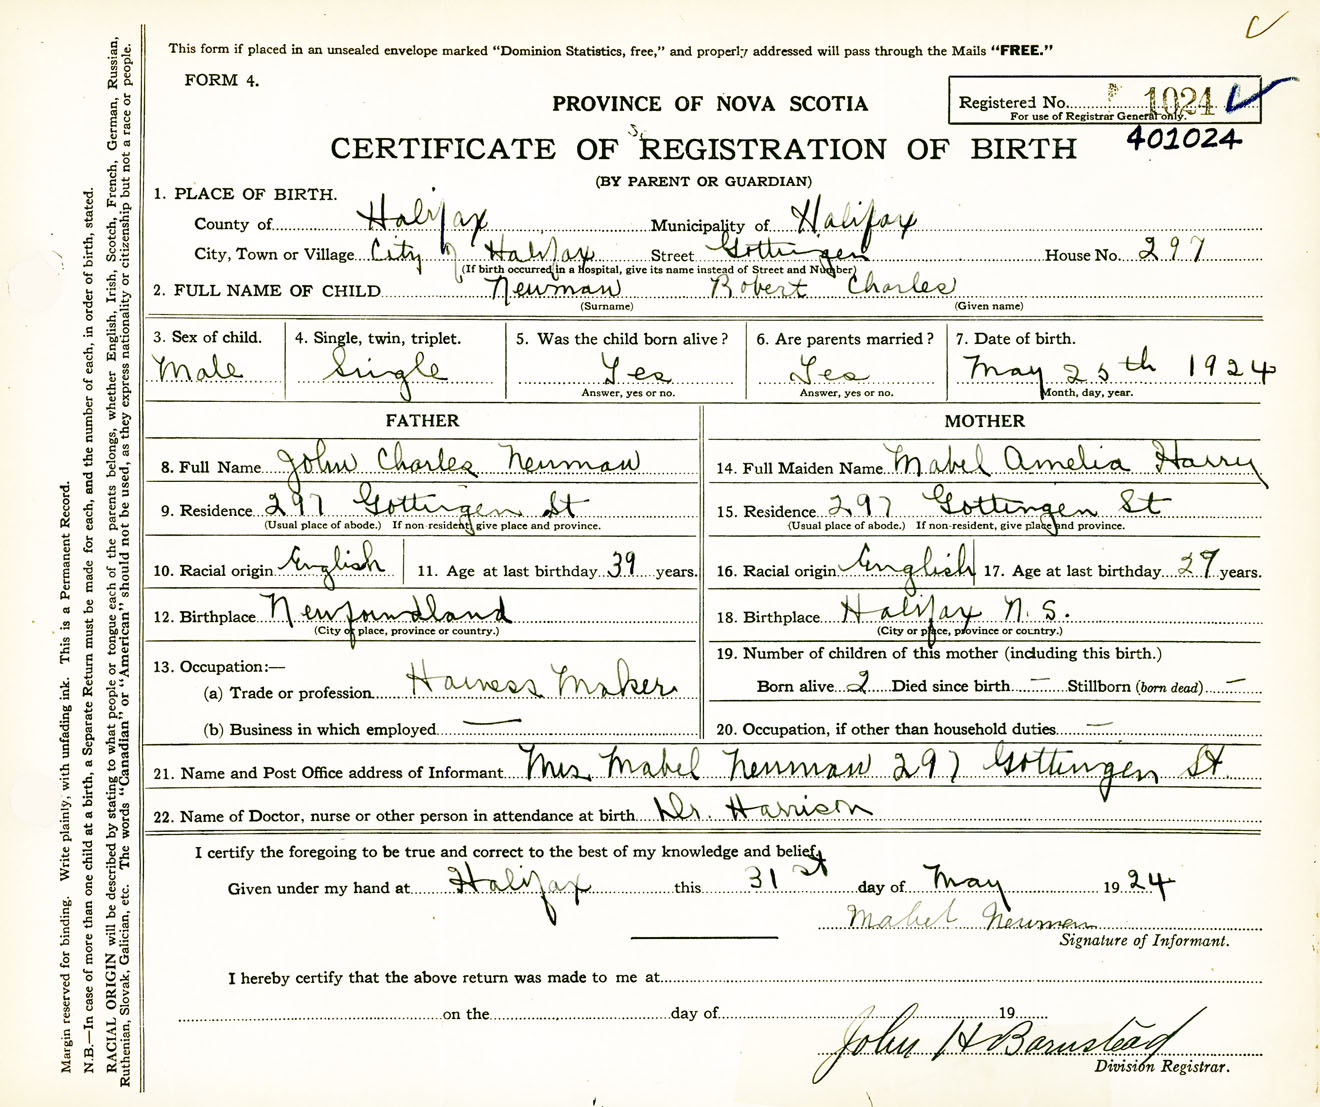 This form if placed in an unsealed envelope marked “Dominion Statistics, free,” and properly addressed will pass through the Mails “FREE.”
FORM 4.
PROVINCE OF NOVA SCOTIA
Registered No. 1024
For use of Registrar General only.
401024
CERTIFICATE OF REGISTRATION OF BIRTH
(BY PARENT OR GUARDIAN)
1. PLACE OF BIRTH.
County of Halifax Municipality of Halifax
City, Town or Village City of Halifax Street Gottingen House No. 297
(If birth occurred in a Hospital, give its name instead of Street and Number)
2. FULL NAME OF CHILD Newman Robert Charles
(Surname) (Given name)
3. Sex of child. 4. Single, twin, triplet. 5. Was the child born alive? 6. Are parents married? 7. Date of birth.
Male Single Yes Yes May 25th 1924
Answer, yes or no. Answer, yes or no. Month, day, year.
FATHER MOTHER
8. Full Name John Charles Newman 14. Full Maiden Name Mabel Amelia Harry
9. Residence 297 Gottingen St 15. Residence 297 Gottingen St
(Usual place of abode.) If non-resident, give place and province. (Usual place of abode.) If non-resident, give place and province.
10. Racial origin English 11. Age at last birthday 39 years. 16. Racial origin English 17. Age at last birthday 27 years.
12. Birthplace Newfoundland 18. Birthplace Halifax N. S.
(City or place, province or country.) (City or place, province or country.)
13. Occupation:— 19. Number of children of this mother (including this birth.)
(a) Trade or profession Harness Maker Born alive 2 Died since birth — Stillborn (born dead) —
(b) Business in which employed — 20. Occupation, if other than household duties —
21. Name and Post Office address of Informant Mrs. Mabel Newman 297 Gottingen St.
22. Name of Doctor, nurse or other person in attendance at birth Dr. Harrison
I certify the foregoing to be true and correct to the best of my knowledge and belief.
Given under my hand at Halifax this 31st day of May 1924
Mabel Newman
Signature of Informant.
I hereby certify that the above return was made to me at
on the day of 19
John H Barnstead
Division Registrar.
Margin reserved for binding. Write plainly, with unfading ink. This is a Permanent Record.
N.B.—In case of more than one child at a birth, a Separate Return must be made for each, and the number of each, in order of birth, stated.
RACIAL ORIGIN will be described by stating to what people or tongue each of the parents belongs, whether English, Irish, Scotch, French, German, Russian,
Ruthenian, Slovak, Galician, etc. The words “Canadian” or “American” should not be used, as they express nationality or citizenship but not a race or people.